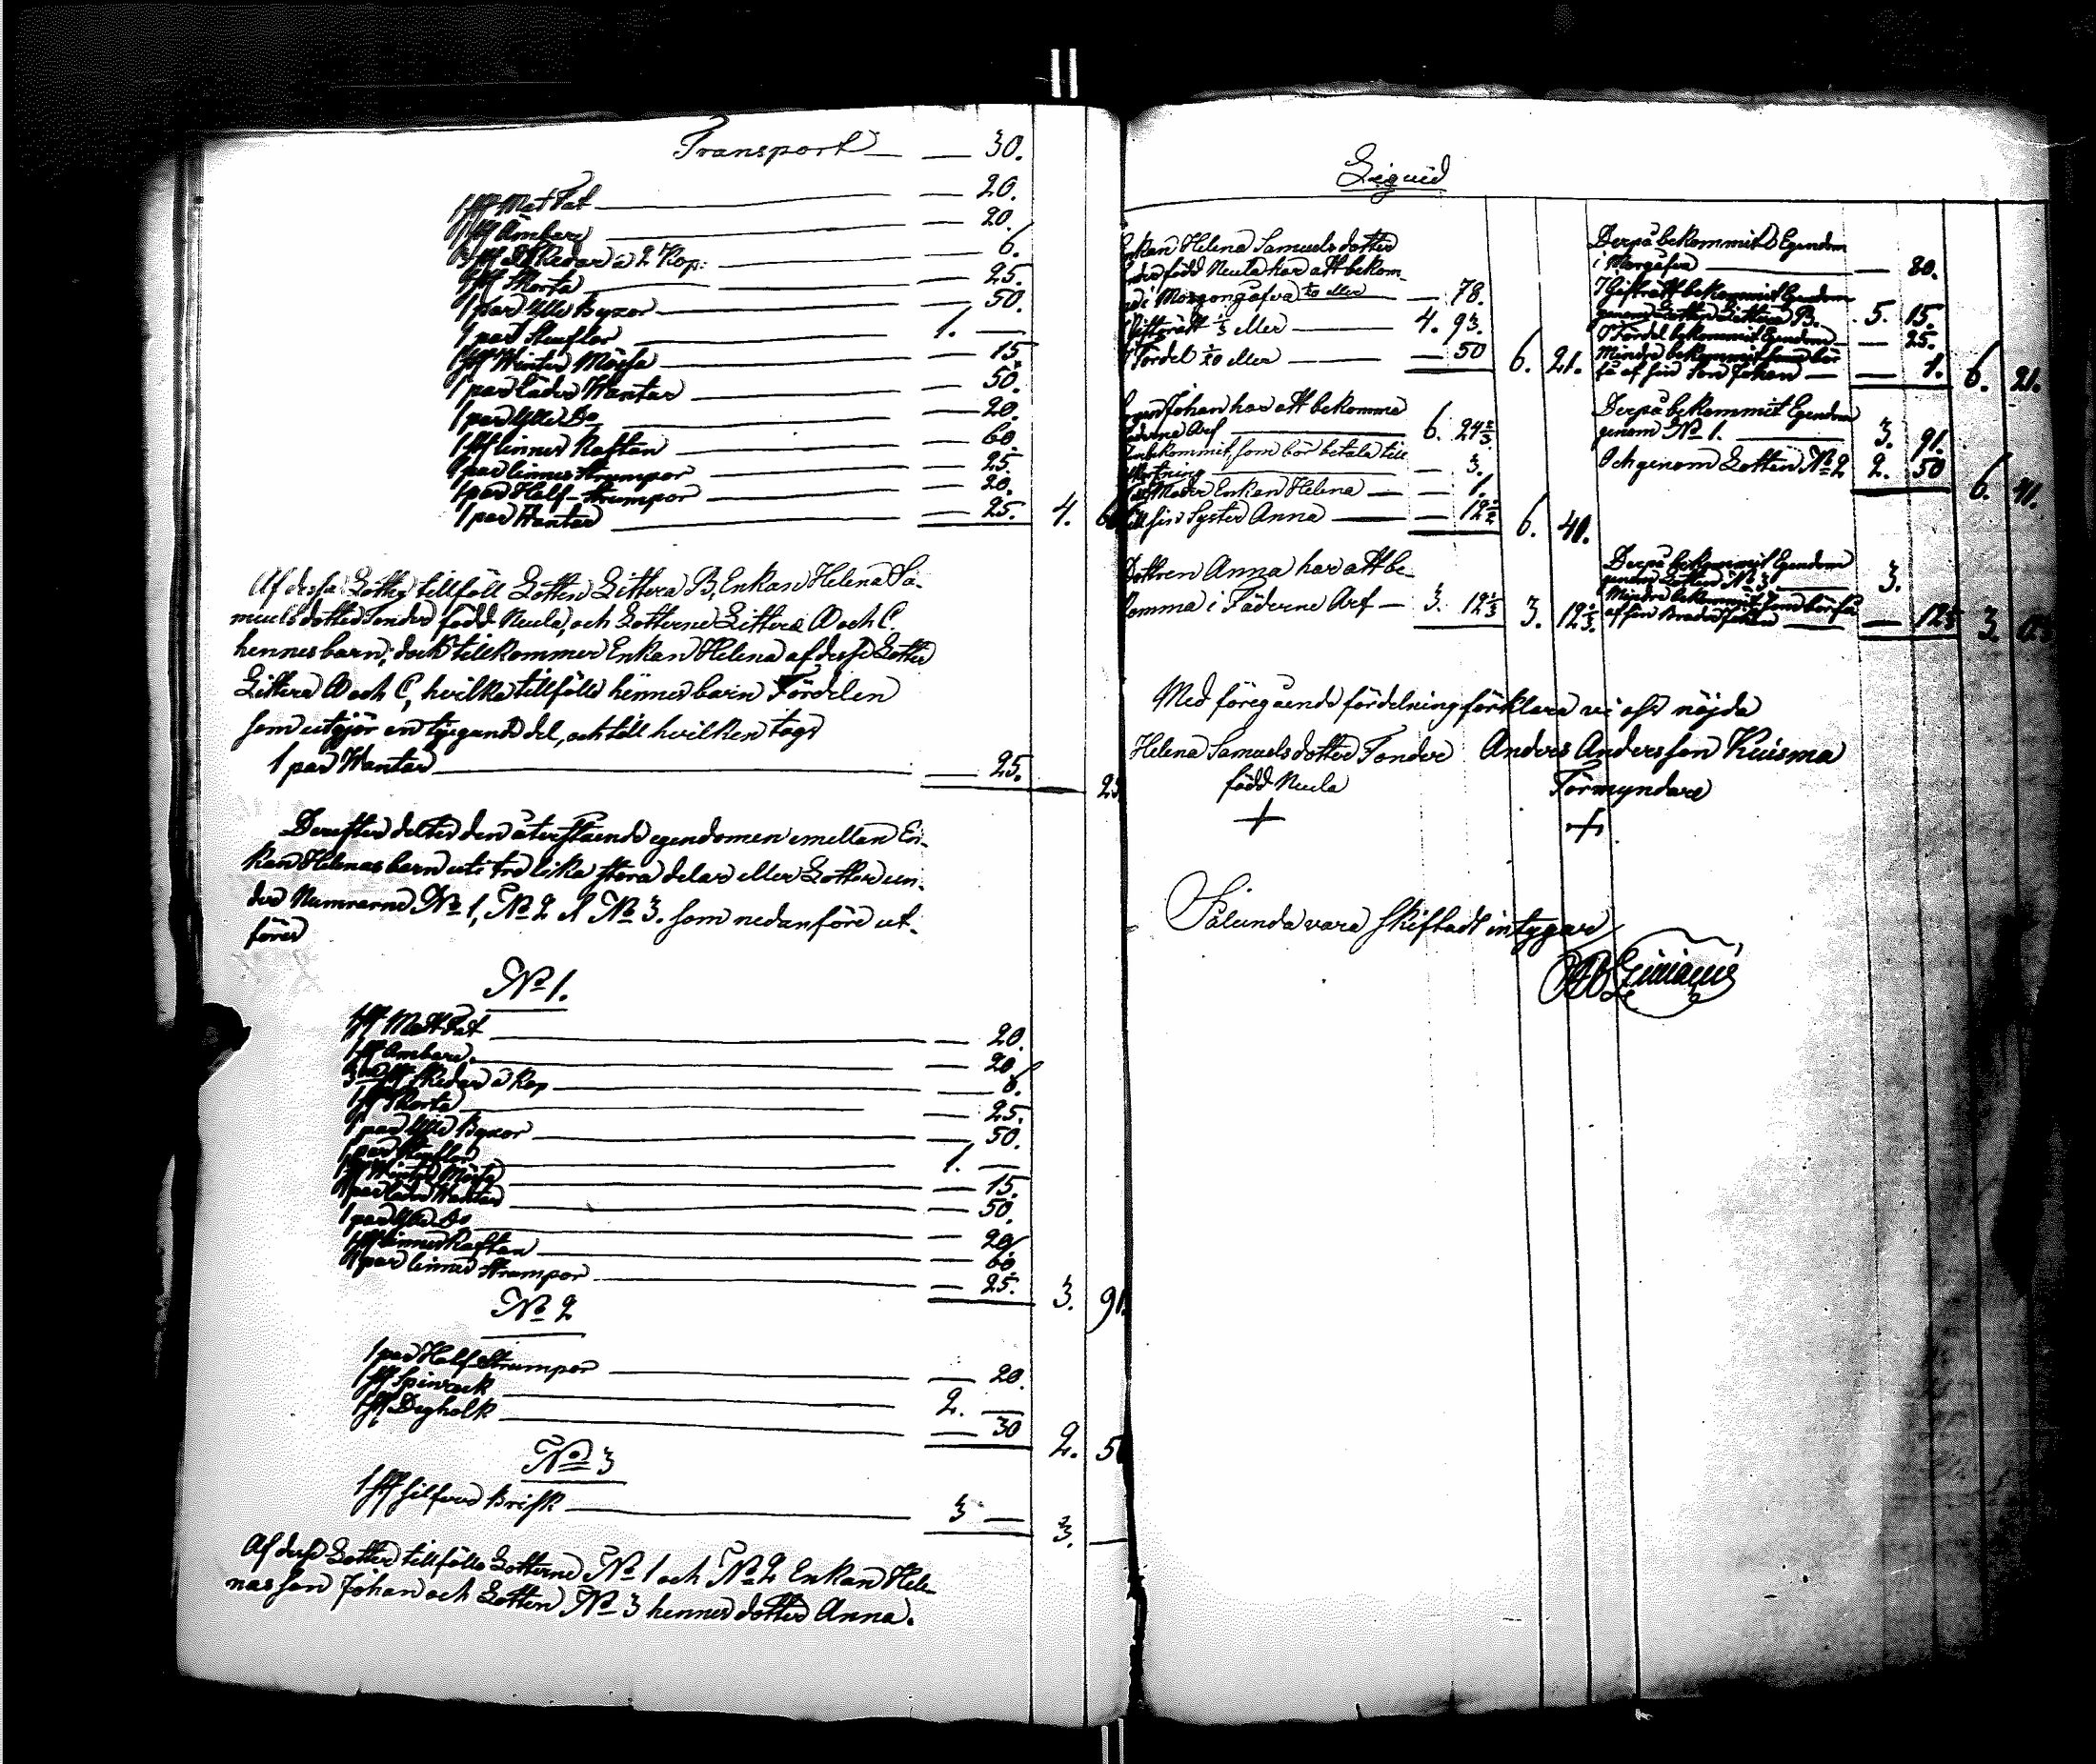 Transport — — 30.
1 st Mat Fat — — 20.
1 st Ämbare — — 20.
3 st Skedar a 2 Kop: — 6.
1 st Skorta — — 25.
1 par Ylle Byxor — — 50.
1 par Stuflor — 1. —
1 st Winter Mössa — — 15.
1 par Läder Wantar — — 50.
1 par Ylle Do — — 20.
1 st linnes Kaftan — — 60.
1 par linnes Strumpor — — 25.
1 par Half-Strumpor — — 20.
1 par Wantar — — 25. 4. 6
Af dessa Lotter tillföll Lotten Littera B, Enkan Helena Sa-
muelsdotter Tonder född Neula, och Lotterne Littera A och C
hennes barn; dock tillkommer Enkan Helena af desse Lotter
Littera A och C, hvilka tillföllo hennes barn Fördelen
som utgör en tjugonde del, och till hvilken togs
1 par Wantar — — 25. — 25
Derefter deltes den återstående egendomen emellan En-
kan Helenas barn uti tre lika stora delar eller Lotter un-
der Numrarne No 1, No 2 & No 3. som nedanföre ut-
föres
No 1.
1 st Mat Fat — — 20.
1 st Ämbare — — 20
3 st Skedar a Kop — — 6.
1 st Skorta — — 25.
1 par Ylle Byxor — — 50.
1 par Stuflor — 1. —
1 st Winter Mössa — — 15.
1 par läder Wantar — — 50.
1 par Ylle Do — — 20
1 st linnes Kaftan — — 60.
1 par linnes Strumpor — — 25. 3. 91.
No 2
1 par Half Strumpor — — 20.
1 st Spinrock — 2. —
1 st Degholk — — 30 2. 50
No 3
1 st silfver Brisk — 3 — 3. —
Af desse Lotter tillföllo Lotterne No 1 och No 2 Enkan Hele-
nas son Johan och Lotten No 3 hennes dotter Anna.
Liquid
Enkan Helena Samuelsdotter
född Neula har att bekom-
i Morgongåfva 1/20 eller — — 78.
Giftorätt 1/3 eller — 4. 93.
Fördel 1/20 eller — — 50 6. 21.
Derpå bekommit Egendom
i Morgåfva — — 80.
I Giftorätt bekommit Egendom
genom Lotten Littera B. 5. 15.
I Fördel bekommit Egendom — — 25.
Mindre bekommit som bör
få af sin Son Johan — — 1. 6. 21.
Johan har att bekomma
Fäderne Arf — 6. 24 2/3
bekommit, som bör betala till
— 3.
Moder Enkan Helena — — 1.
till sin Syster Anna — — 12 1/2 6. 41.
Derpå bekommit Egendom
genom No 1. — 3. 91.
Och genom Lotten No 2 2. 50 6. 41.
Dottren Anna har att be-
komma i Fäderne Arf — 3. 12 1/3 3. 12 1/3.
Derpå bekommit Egendom
genom Lotten No 3 — 3.
Mindre bekommit som bör få
af sin Broder Johan — — 12 1/3 3.
Med föregående fördelning förklara vi oss nöjda
Helena Samuelsdotter Tonder Anders Andersson Kuisma
född Neula Förmyndare
+ +
Sålunda vara skiftadt intygar